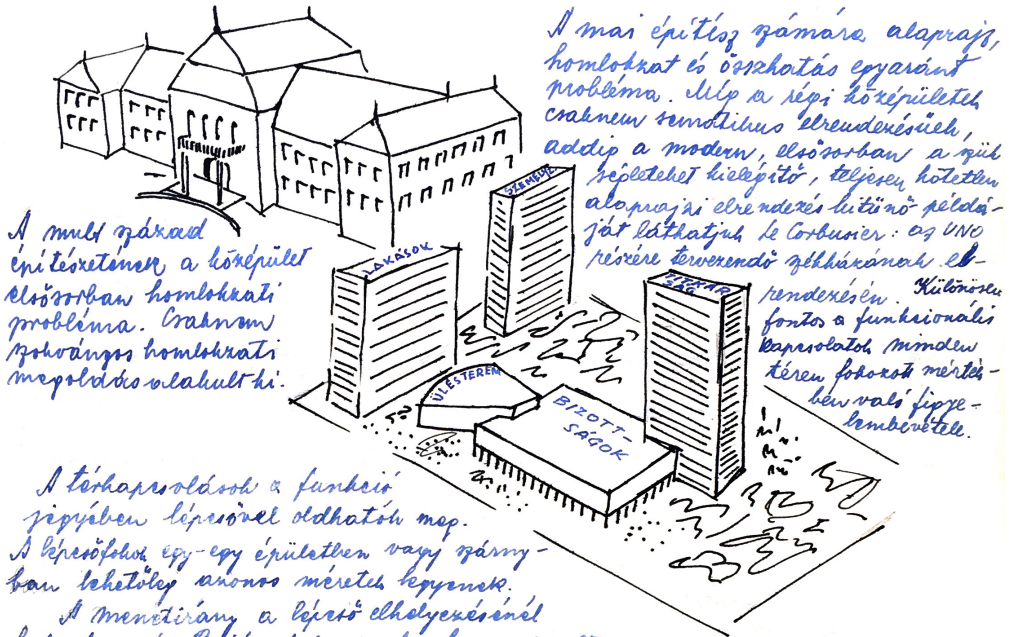 A mai építész számára alaprajz,
homlokzat és összhatás egyaránt
probléma. Míg a régi középületek
csaknem sematikus elrendezésűek,
addig a modern, elsősorban a szük
ségleteket kielégítő, teljesen kötetlen
alaprajzi elrendezés kitünő példá-
ját láthatjuk Le Corbusier: az UNO
részére tervezendő székházának el-
rendezésén. Különösen
fontos a funkcionális
kapcsolatok minden
téren fokozott mérték-
ben való figye-
lembevétele.
A mult század
építészetének a középület
elsősorban homlokzati
probléma. Csaknem
szokványos homlokzati
megoldás alakult ki.
SZEMÉLYZ.
LAKÁSOK
TITKÁR
SÁG
ÜLÉSTEREM
BIZOTT-
SÁGOK
A térkapcsolások a funkció
jegyében lépcsővel oldhatók meg.
A lépcsőfokok egy-egy épületben vagy szárny-
ban lehetőleg azonos méretek legyenek.
A menetirány a lépcső elhelyezésénél